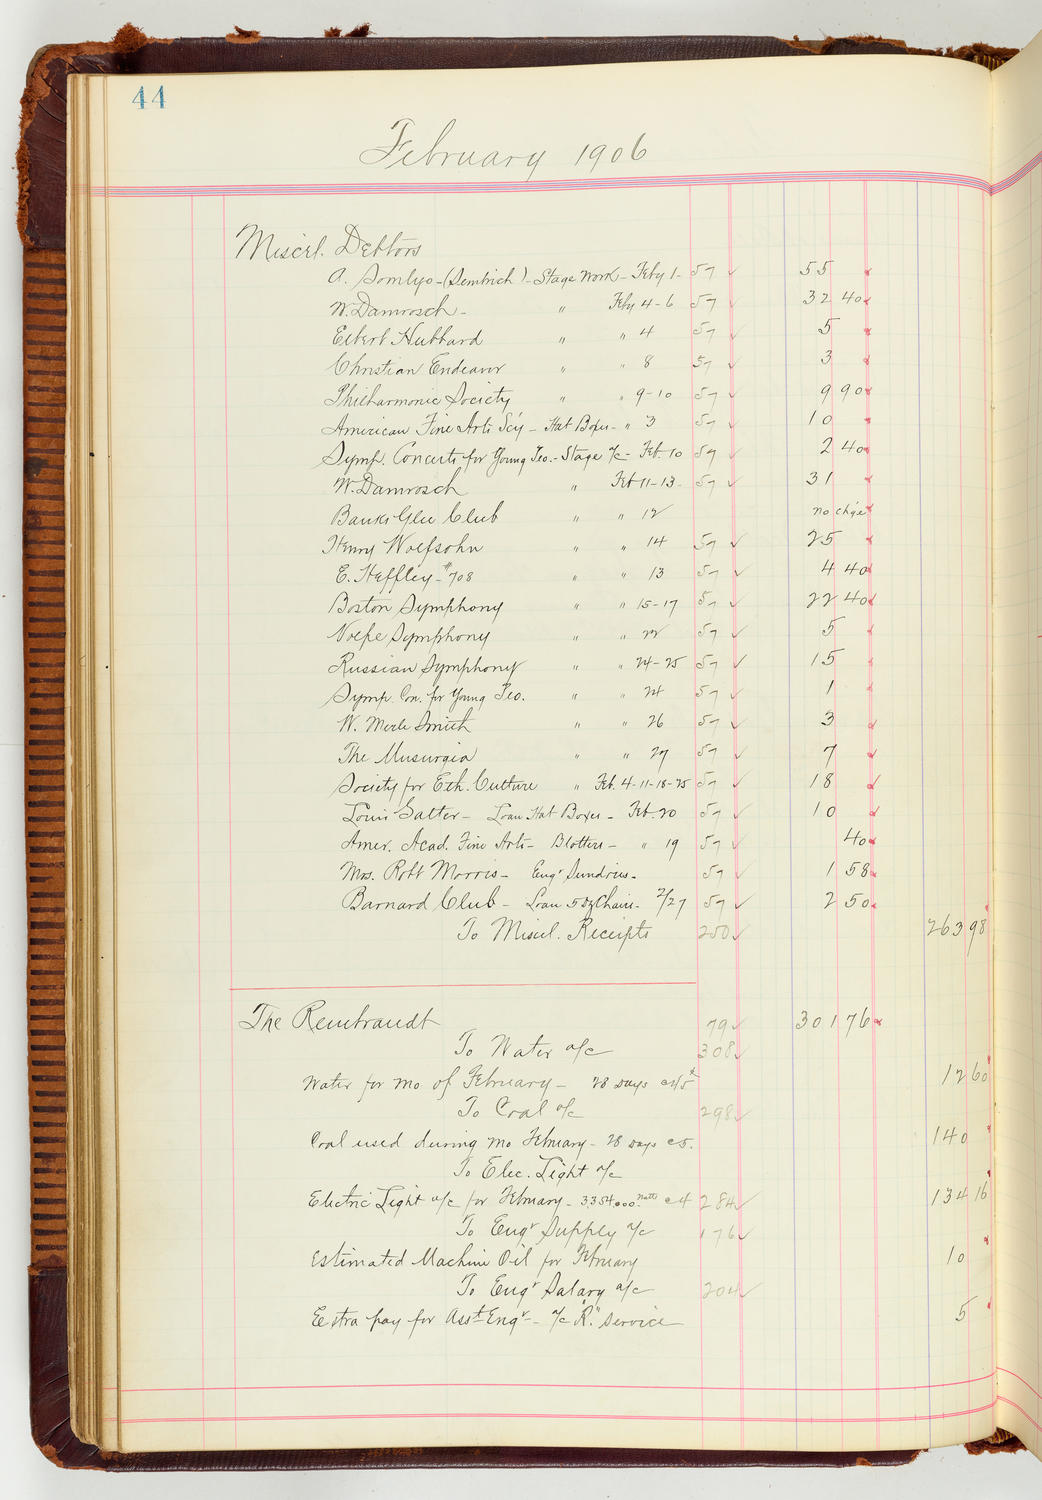 44
February 1906
Miscel. Debtors
A. Somlyo - (Sembrich) - Stage Work - Feby 1 - 57 ✓ 55
W. Damrosch - " Feby 4-6 57 ✓ 32 40
Elbert Hubbard " " 4 57 ✓ 5
Christian Endeavor " " 8 57 ✓ 3
Philharmonic Society " " 9-10 57 ✓ 9 90
American Fine Arts Scy - Hat Boxes - " 3 57 ✓ 10
Symp. Concerts for Young Peo. - Stage a/c - Feb. 10 57 ✓ 2 40
W. Damrosch " Feb 11-13 - 57 ✓ 31
Banks Glee Club " " 12 no chge
Henry Wolfsohn " " 14 57 ✓ 25
E. Heffley - #708 " " 13 57 ✓ 4 40
Boston Symphony " " 15-17 57 ✓ 22 40
Volpe Symphony " " 22 57 ✓ 5
Russian Symphony " " 24-25 57 ✓ 15
Symp. Con. for Young Peo. " " 24 57 ✓ 1
W. Merle Smith " " 26 57 ✓ 3
The Musurgia " " 27 57 ✓ 7
Society for Eth. Culture " Feb. 4-11-18-25 57 ✓ 18
Louis Salter - Loan Hat Boxes - Feb. 20 57 ✓ 10
Amer. Acad. Fine Arts - Blotters - " 19 57 ✓ 40
Mrs. Robt Morris - Engr Sundries - 57 ✓ 1 58
Barnard Club - Loan 5 dz Chairs - 2/27 57 ✓ 2 50
To Miscel. Receipts 250 ✓ 263 98
The Rembrandt 79 ✓ 301 76
To Water a/c 308 ✓
Water for mo of February - 28 Days @ 45¢ 12 60
To Coal a/c 298 ✓
Coal used during mo February - 28 Days @ 5. 140
To Elec. Light a/c
Electric Light a/c for February - 3,354,000 watts @ 4 284 ✓ 134 16
To Engr Supply a/c 176 ✓
Estimated Machine Oil for February 10
To Engr Salary a/c 204 ✓
Extra pay for Asst Engr - a/c "R." service 5